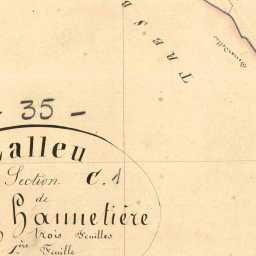 TRESB
- 35 -
Lalleu
Section C. 1
de
Hannetière
trois Feuilles
1ère Feuille